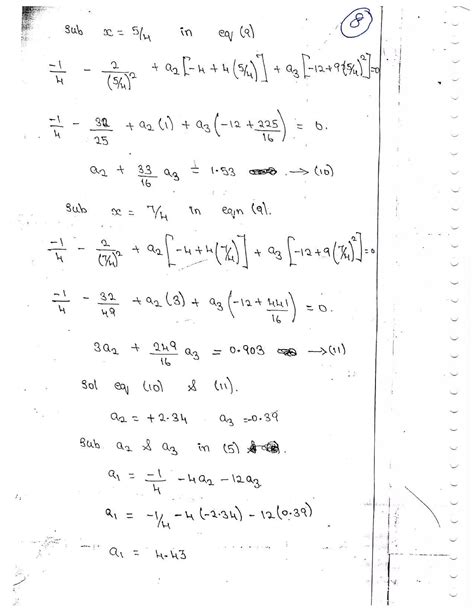 8
Sub x = 5/4 in eq (9)
-1/4 - 2/(5/4)^2 + a2[-4+4(5/4)] + a3[-12+9(5/4)^2]=0
-1/4 - 32/25 + a2(1) + a3(-12 + 225/16) = 0.
a2 + 33/16 a3 = 1.53 → (10)
Sub x = 7/4 in eqn (9).
-1/4 - 2/(7/4)^2 + a2[-4+4(7/4)] + a3[-12+9(7/4)^2]=0
-1/4 - 32/49 + a2(3) + a3(-12 + 441/16) = 0.
3a2 + 249/16 a3 = 0.903 → (11)
Sol eq (10) & (11).
a2 = +2.34 a3 = -0.39
Sub a2 & a3 in (5)
a1 = -1/4 - 4a2 - 12a3
a1 = -1/4 - 4(-2.34) - 12(0.39)
a1 = 4.43